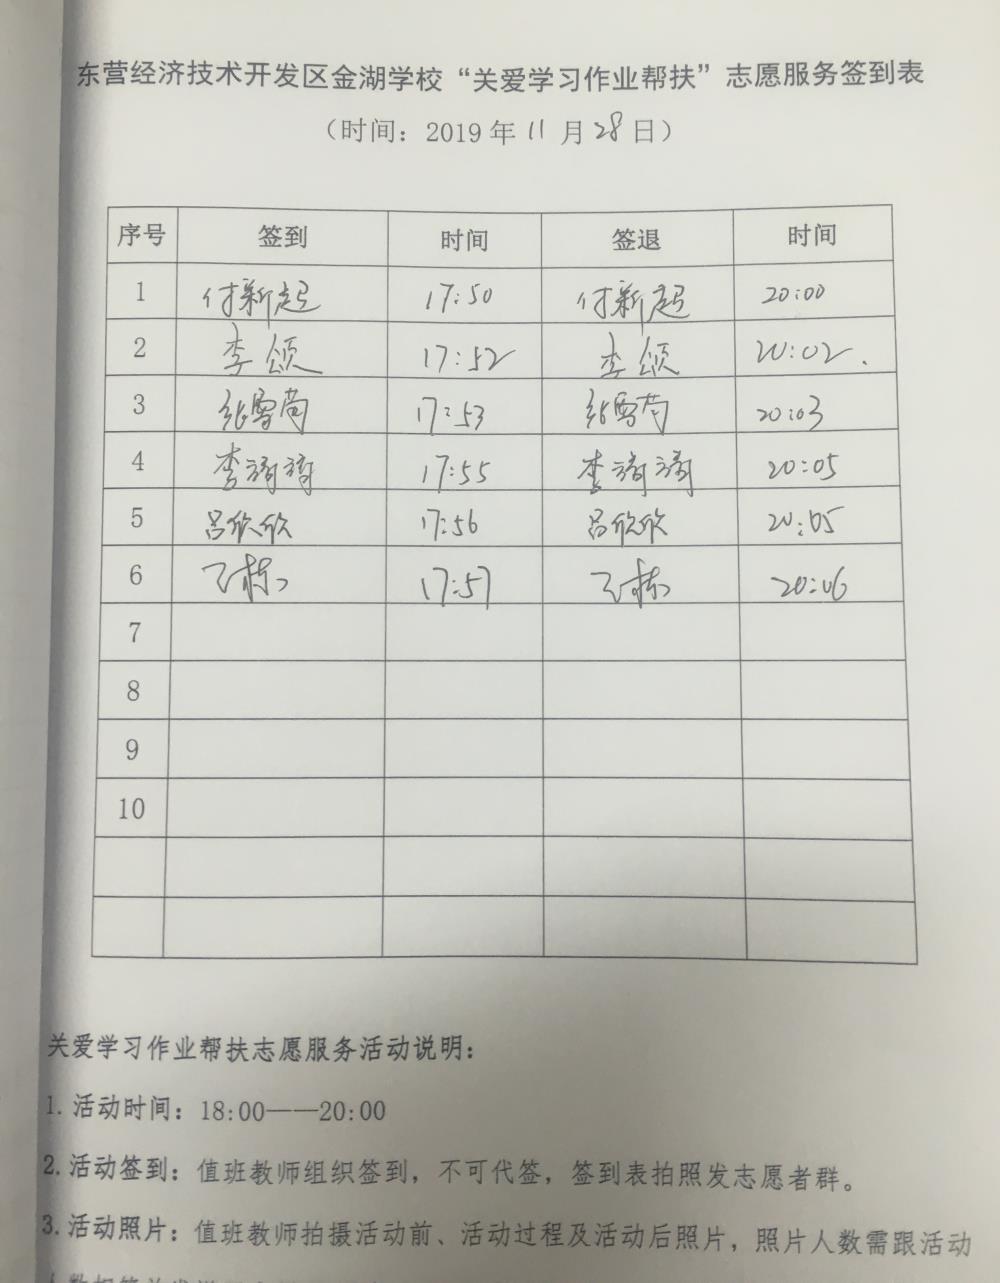 东营经济技术开发区金湖学校“关爱学习作业帮扶”志愿服务签到表
（时间：2019年11月28日）
序号 签到 时间 签退 时间
1 付新起 17:50 付新起 20:00
2 李颂 17:52 李颂 20:02.
3 17:53 20:03
4 李 17:55 李 20:05
5 吕欣欣 17:56 吕欣欣 20:05
6 17:57 20:06
7
8
9
10
关爱学习作业帮扶志愿服务活动说明：
1.活动时间：18:00——20:00
2.活动签到：值班教师组织签到，不可代签，签到表拍照发志愿者群。
3.活动照片：值班教师拍摄活动前、活动过程及活动后照片，照片人数需跟活动